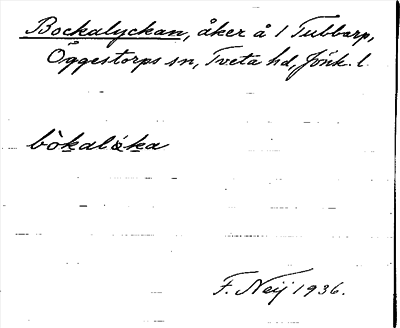 Bockalyckan, åker å 1 Tubbarp,
Öggestorps sn, Tveta hd, Jönk. l.
F. Neij 1936.